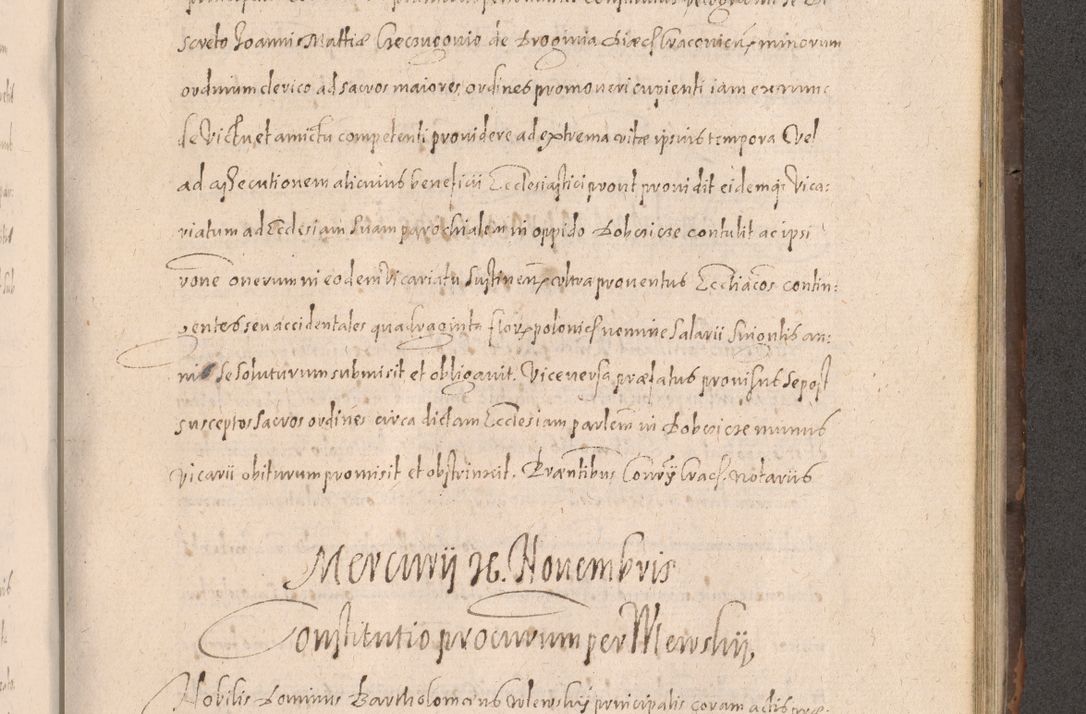 screto Joanni Mattiæ Czeczugonio de Broginia Diæces. Cracovien. minorum
ordinum clerico ad sacros maiores ordines promoveri cupienti iam ex nunc
de victu et amictu competenti providere ad extrema vitæ ipsius tempora Vel
ad assecutionem alicuius beneficii Ecclesiastici prout providit eidemq. Vica:
riatum ad Ecclesiam suam parochialem in oppido Dobczicze contulit ac ipsi
rone onerum in eodem Vicariatu sustinen. ultra proventus Ecclîacos contin:
gentes seu accidentales quadraginta flor. polonic. nomine Salarii singulis an:
nis se soluturum submisit et obligavit. Vice versa præfatus provisus se post
susceptos sacros ordines circa dictam Ecclesiam parlem in Dobczicze munus
vicarii obiturum promisit et obstrinxit. Præntibus Cor Crac. Notariis
Mercurij 26. Novembris
Constitutio procurum per Mewskij
Nobilis Dominus Bartholomæus Mewskij principalis coram actis